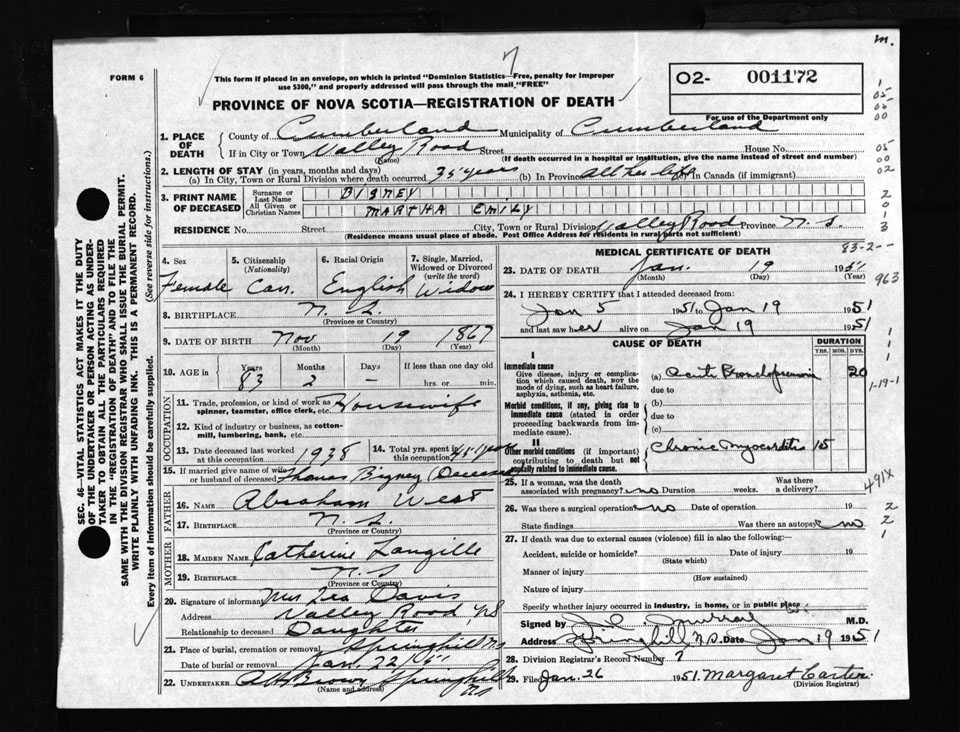 m.
7
FORM 6
This form if placed in an envelope, on which is printed "Dominion Statistics—Free, penalty for improper
use $300," and properly addressed will pass through the mail "FREE"
O2- 001172
For use of the Department only
PROVINCE OF NOVA SCOTIA—REGISTRATION OF DEATH
1. PLACE OF DEATH
County of Cumberland Municipality of Cumberland
If in City or Town Valley Road Street House No.
(Name) (If death occurred in a hospital or institution, give the name instead of street and number)
2. LENGTH OF STAY (in years, months and days)
(a) In City, Town or Rural Division where death occurred 35 years (b) In Province all her life (c) in Canada (if immigrant)
3. PRINT NAME OF DECEASED
Surname or Last Name BIGNEY
All Given or Christian Names MARTHA EMILY
RESIDENCE No. Street City, Town or Rural Division Valley Road Province N.S.
(Residence means usual place of abode. Post Office Address for residents in rural parts not sufficient)
4. Sex Female
5. Citizenship (Nationality) Can.
6. Racial Origin English
7. Single, Married, Widowed or Divorced (write the word) Widow
8. BIRTHPLACE N.S.
(Province or Country)
9. DATE OF BIRTH Nov 19 1867
(Month) (Day) (Year)
10. AGE in Years 83 Months 2 Days – If less than one day old hrs. or min.
OCCUPATION
11. Trade, profession or kind of work as spinner, teamster, office clerk, etc. Housewife
12. Kind of industry or business, as cotton-mill, lumbering, bank, etc.
13. Date deceased last worked at this occupation 1938
14. Total yrs. spent in this occupation 41 years
15. If married give name of wife or husband of deceased Thomas Bigney (Deceased)
FATHER
16. NAME Abraham West
17. BIRTHPLACE N.S.
(Province or Country)
MOTHER
18. MAIDEN NAME Catherine Langille
19. BIRTHPLACE N.S.
(Province or Country)
20. Signature of informant Mrs Lea Davis
Address Valley Road NS
Relationship to deceased Daughter
21. Place of burial, cremation or removal Springhill NS
Date of burial or removal Jan. 22 - 51
22. UNDERTAKER A H Brown Springhill NS
(Name and address)
MEDICAL CERTIFICATE OF DEATH
83-2--
23. DATE OF DEATH Jan. 19 1951
(Month) (Day) (Year)
963
24. I HEREBY CERTIFY that I attended deceased from:
Jan 5 1951 to Jan 19 1951
and last saw her alive on Jan 19 1951
CAUSE OF DEATH
DURATION
YRS. MOS. DYS.
I
Immediate cause
Give disease, injury or complication which caused death, NOT the mode of dying, such as heart failure, asphyxia, asthenia, etc.
(a) Acute Bronchopneumonia 20
due to
Morbid conditions, if any, giving rise to immediate cause (stated in order proceeding backwards from immediate cause).
(b)
due to
(c)
II
Other morbid conditions (if important) contributing to death but not causally related to immediate cause.
Chronic Myocarditis 15
1-19-1
491X
25. If a woman, was the death associated with pregnancy? no Duration weeks. Was there a delivery?
26. Was there a surgical operation? no Date of operation 19
State findings Was there an autopsy? no
27. If death was due to external causes (violence) fill in also the following:—
Accident, suicide or homicide? Date of injury 19
(State which)
Manner of injury
(How sustained)
Nature of injury
Specify whether injury occurred in industry, in home, or in public place
Signed by Murray M.D.
Address Springhill N.S. Date Jan 19 1951
28. Division Registrar's Record Number 7
29. Filed Jan. 26 1951. Margaret Carter
(Division Registrar)
SEC. 46—VITAL STATISTICS ACT MAKES IT THE DUTY
OF THE UNDERTAKER OR PERSON ACTING AS UNDERTAKER TO OBTAIN ALL THE PARTICULARS REQUIRED
IN THE "REGISTRATION OF DEATH" AND TO FILE THE
SAME WITH THE DIVISION REGISTRAR WHO SHALL ISSUE THE BURIAL PERMIT.
WRITE PLAINLY WITH UNFADING INK. THIS IS A PERMANENT RECORD.
Every item of information should be carefully supplied. (See reverse side for instructions.)